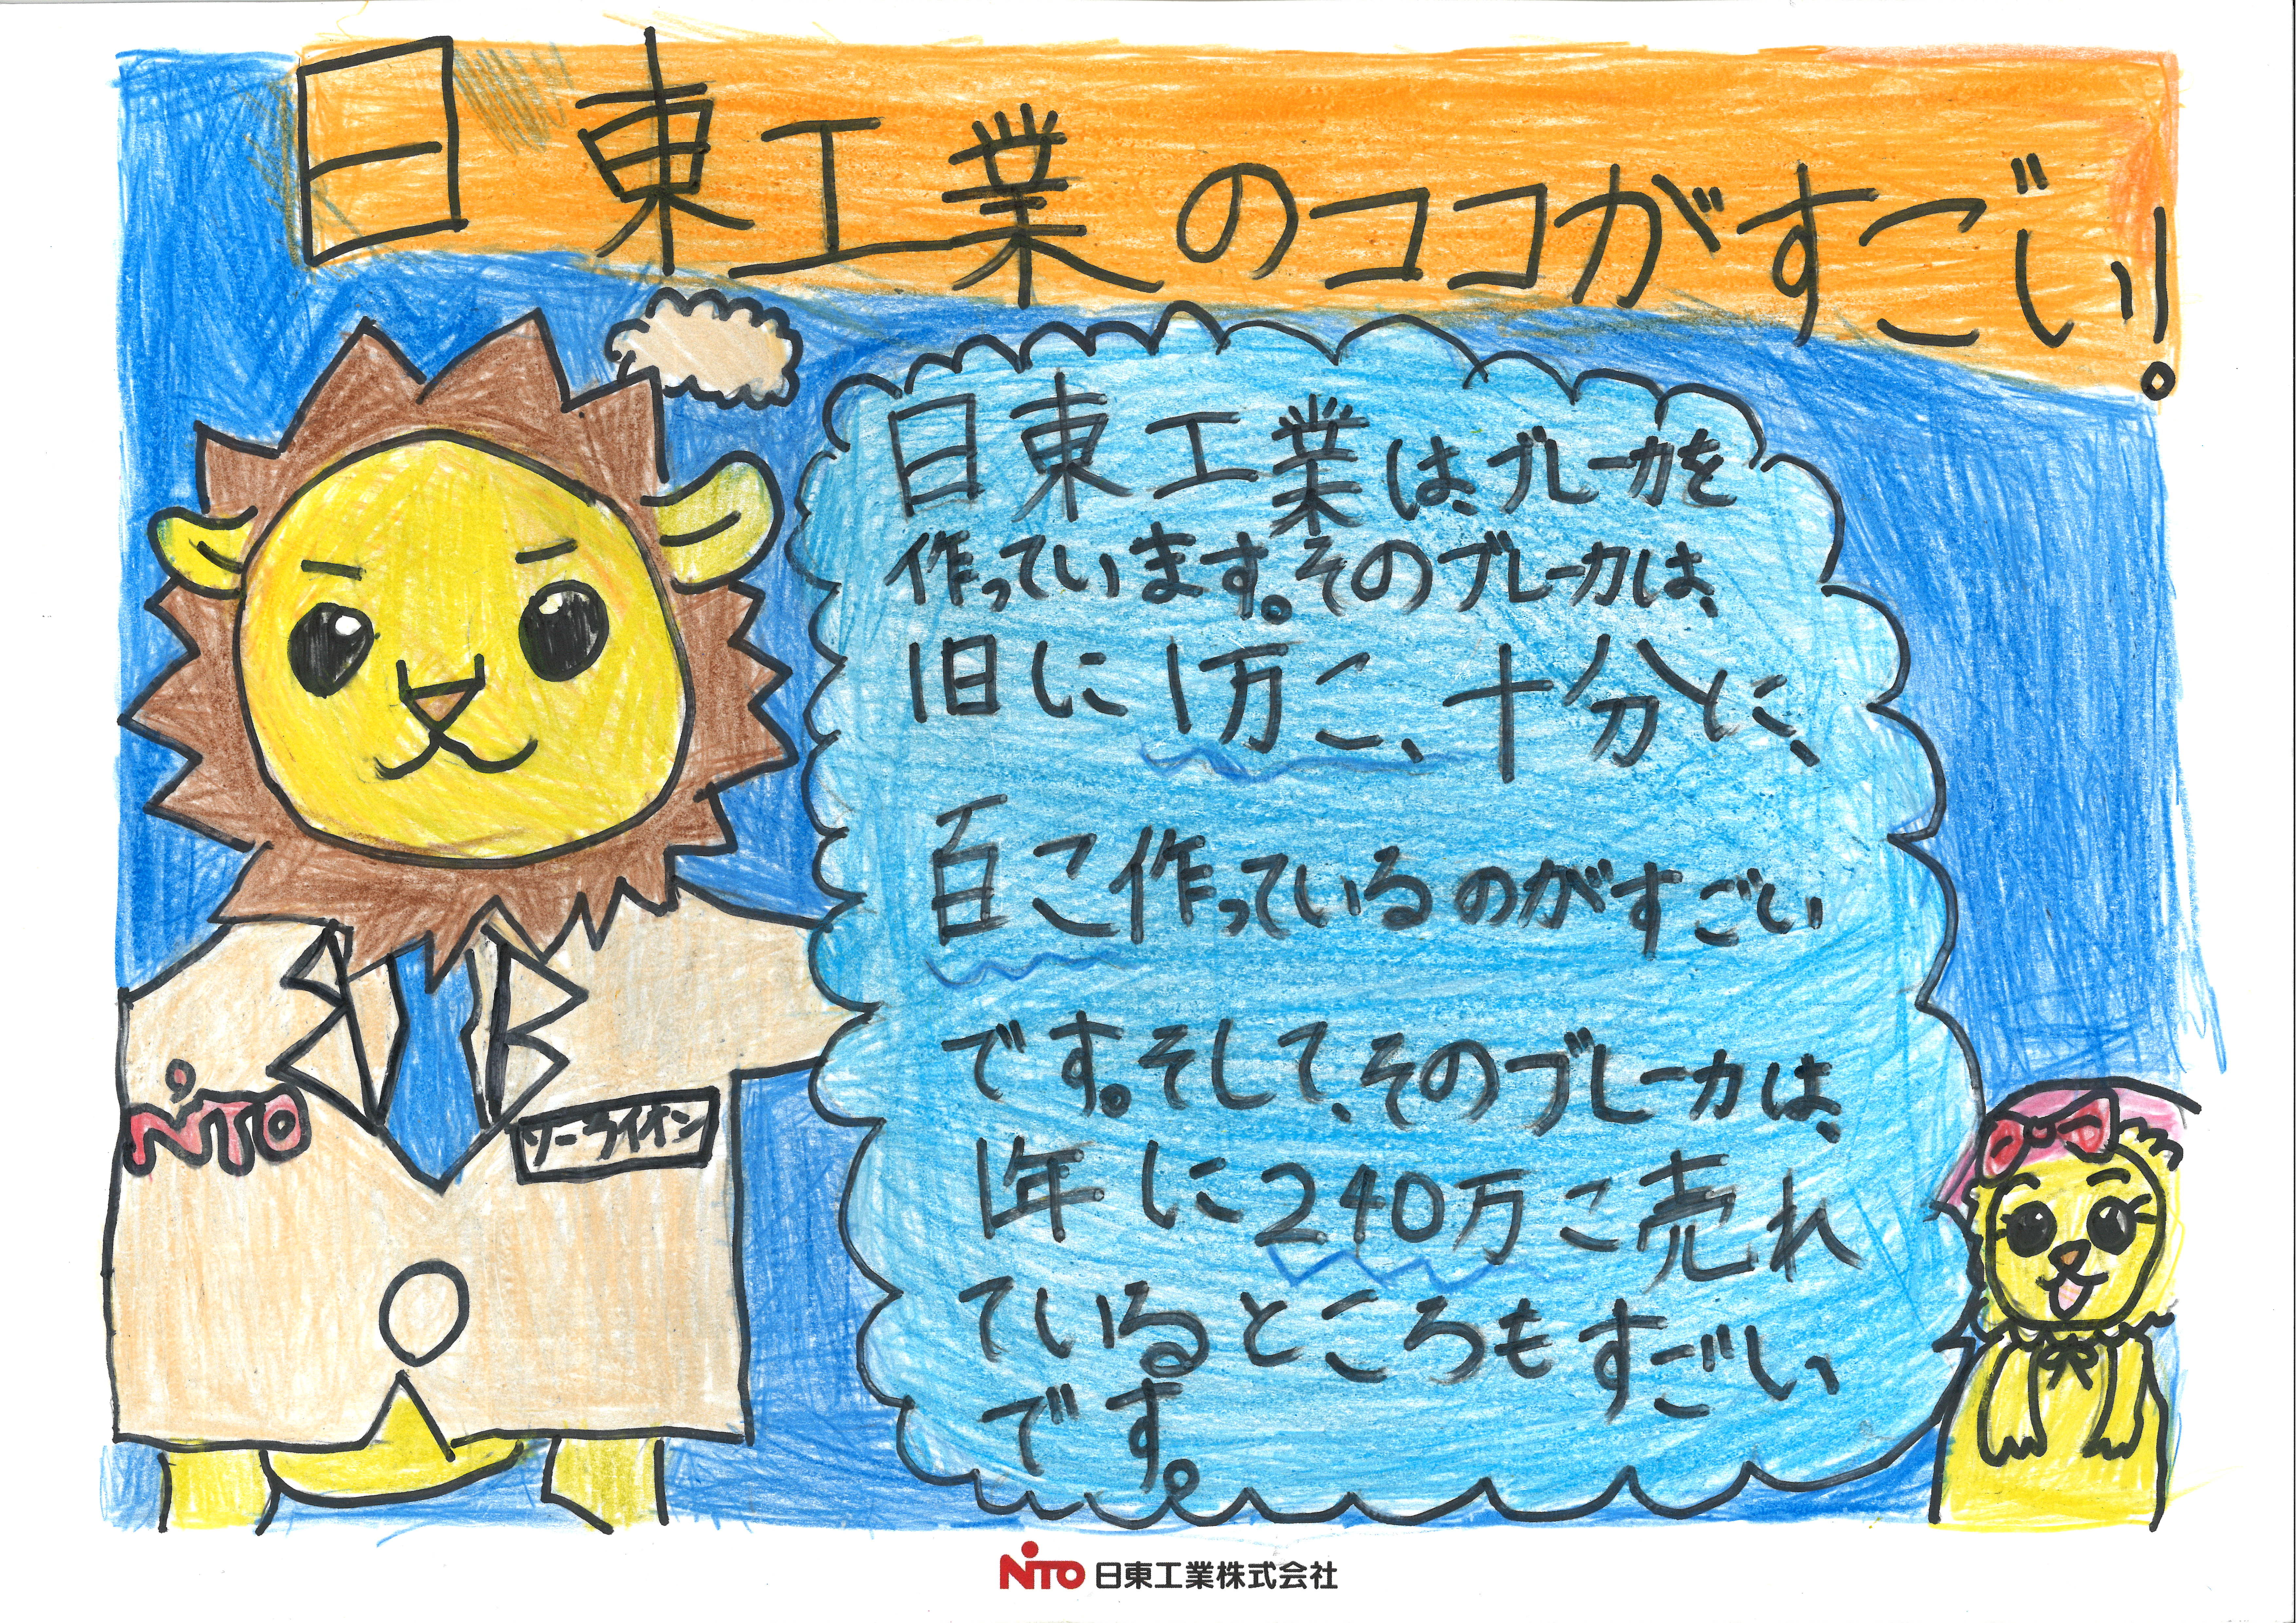 日東工業のココがすごい!
日東工業は、ブレーカを
作っています。そのブレーカは、
1日に1万こ、十分に、
百こ作っているのがすごい
です。そして、そのブレーカは、
1年に240万こ売れ
ているところもすごい
です。
NITO
ソーライオン
NITO 日東工業株式会社